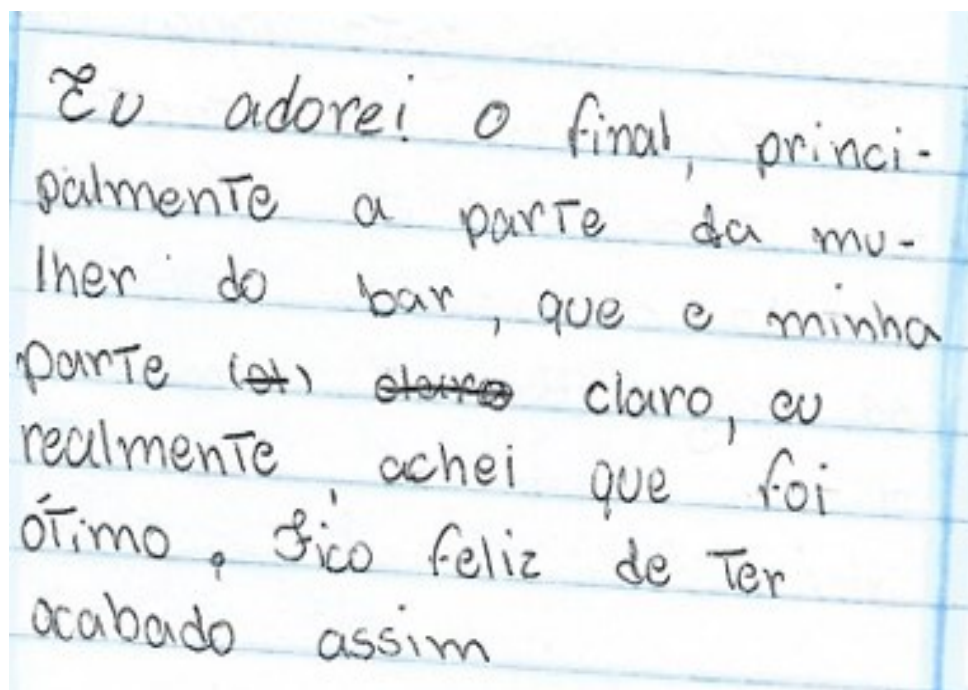 Eu adorei o final, princi-
palmente a parte da mu-
lher do bar, que e minha
parte claro, eu
realmente achei que foi
ótimo. Fico feliz de Ter
acabado assim